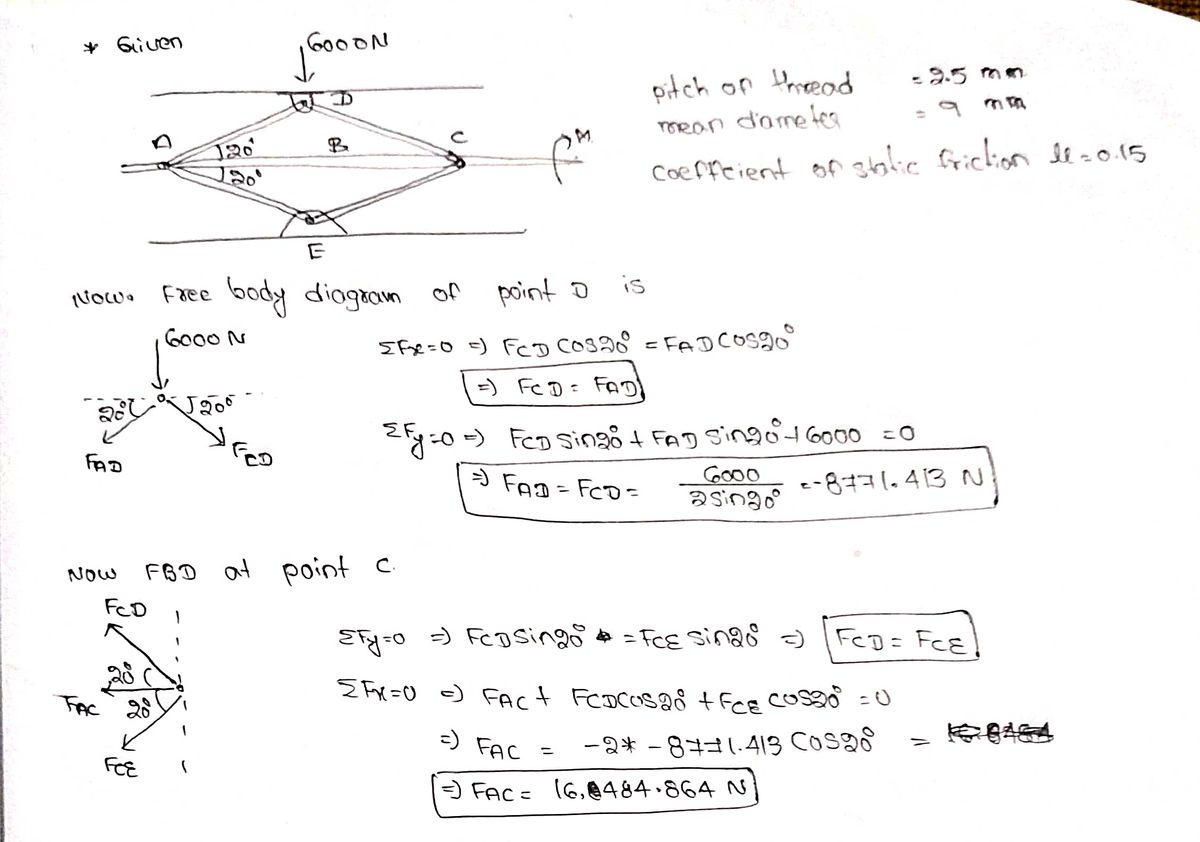 * Given
6000N
D
A
20°
B
C
M
20°
E
pitch of thread = 2.5 mm
mean diameter = 9 mm
coeffcient of static friction μ = 0.15
Now. Free body diagram of point D is
6000 N
20° 20°
FAD FCD
ΣFx=0 => FCD COS20° = FAD COS20°
=> FCD = FAD
ΣFy=0 => FCD Sin20° + FAD Sin20° + 6000 = 0
=> FAD = FCD = 6000 / 2Sin20° = -8771.413 N
Now FBD at point C.
FCD
20°
FAC 20°
FCE
ΣFy=0 => FCD Sin20° = FCE Sin20° => FCD = FCE
ΣFx=0 => FAC + FCD COS20° + FCE COS20° = 0
=> FAC = -2* -8771.413 COS20° =
=> FAC = 16,484.864 N